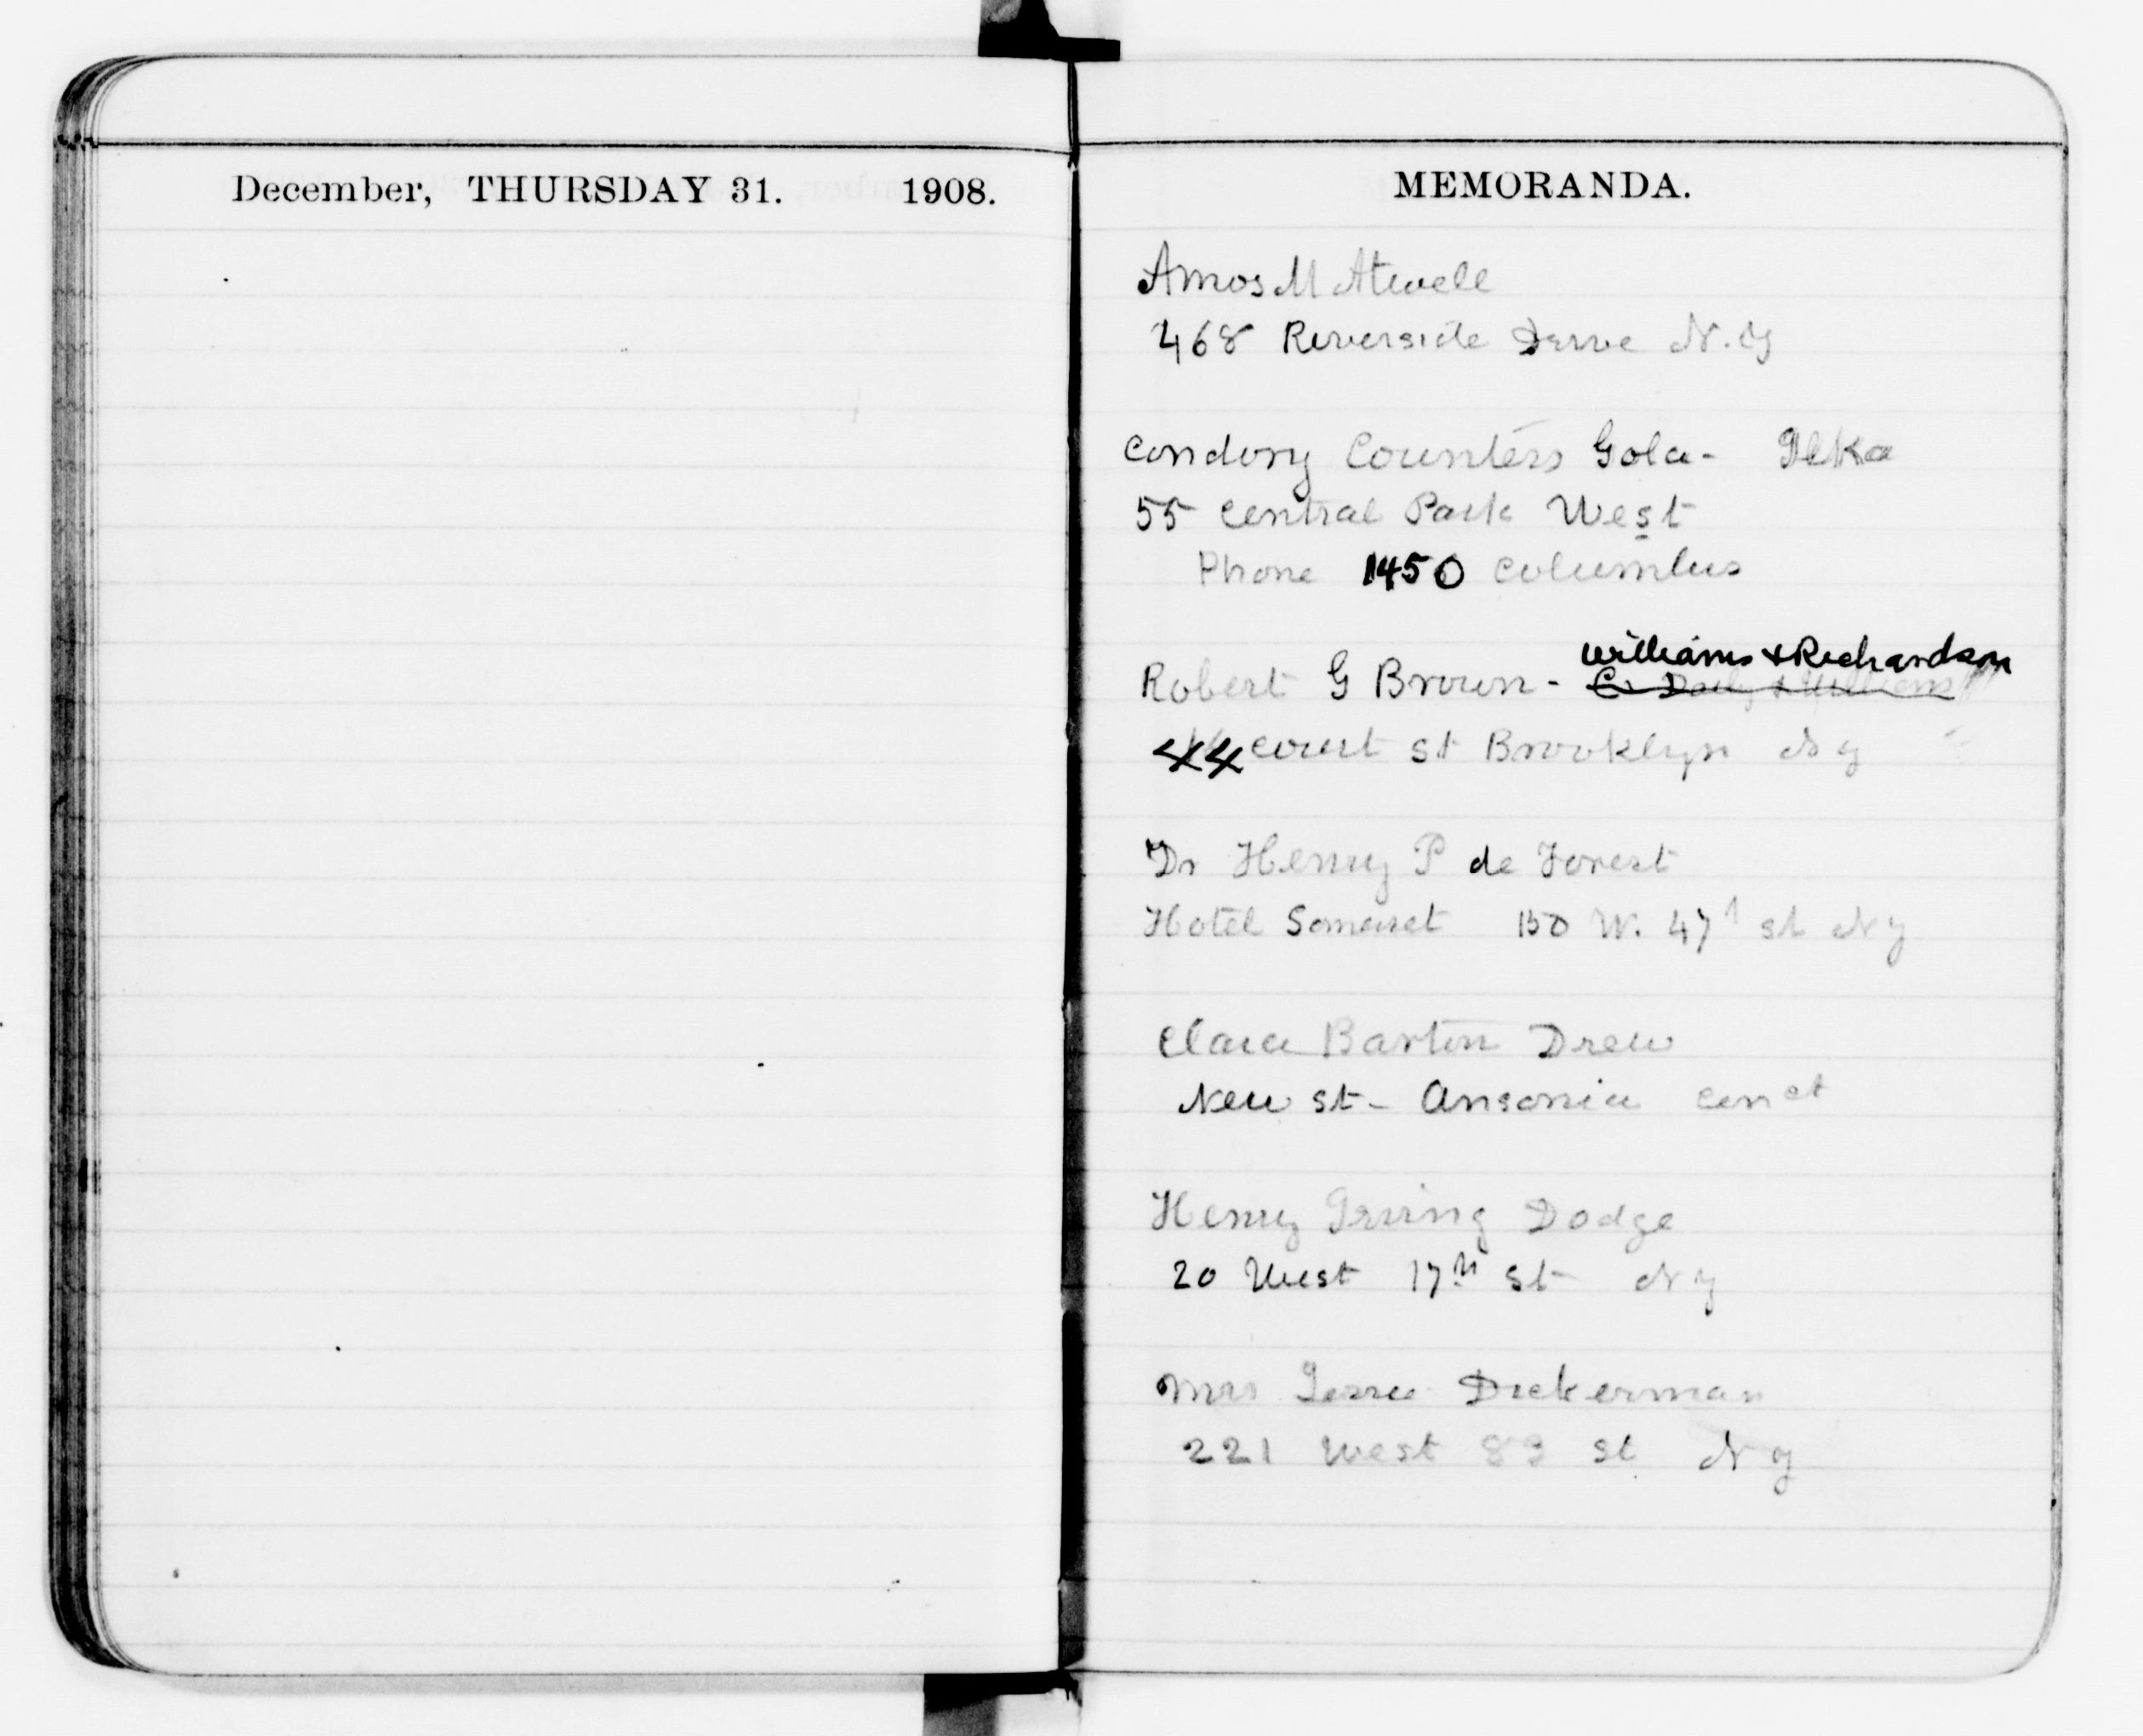 December, THURSDAY 31. 1908.
MEMORANDA.
Amos M Atwell
468 Riverside Drive N.Y
Condory Counters Gola- Ilka
55 Central Park West
Phone 1450 Columbus
Williams & Richardson
Robert G Brown - C. Daily & Williams
44 Court st Brooklyn N y
Dr Henry P de Forest
Hotel Somerset 150 W. 47 st N y
Clara Barton Drew
New st - Ansonia Conct
Henry Irving Dodge
20 West 17th st N y
Mrs Dickerman
221 West 83 st N y